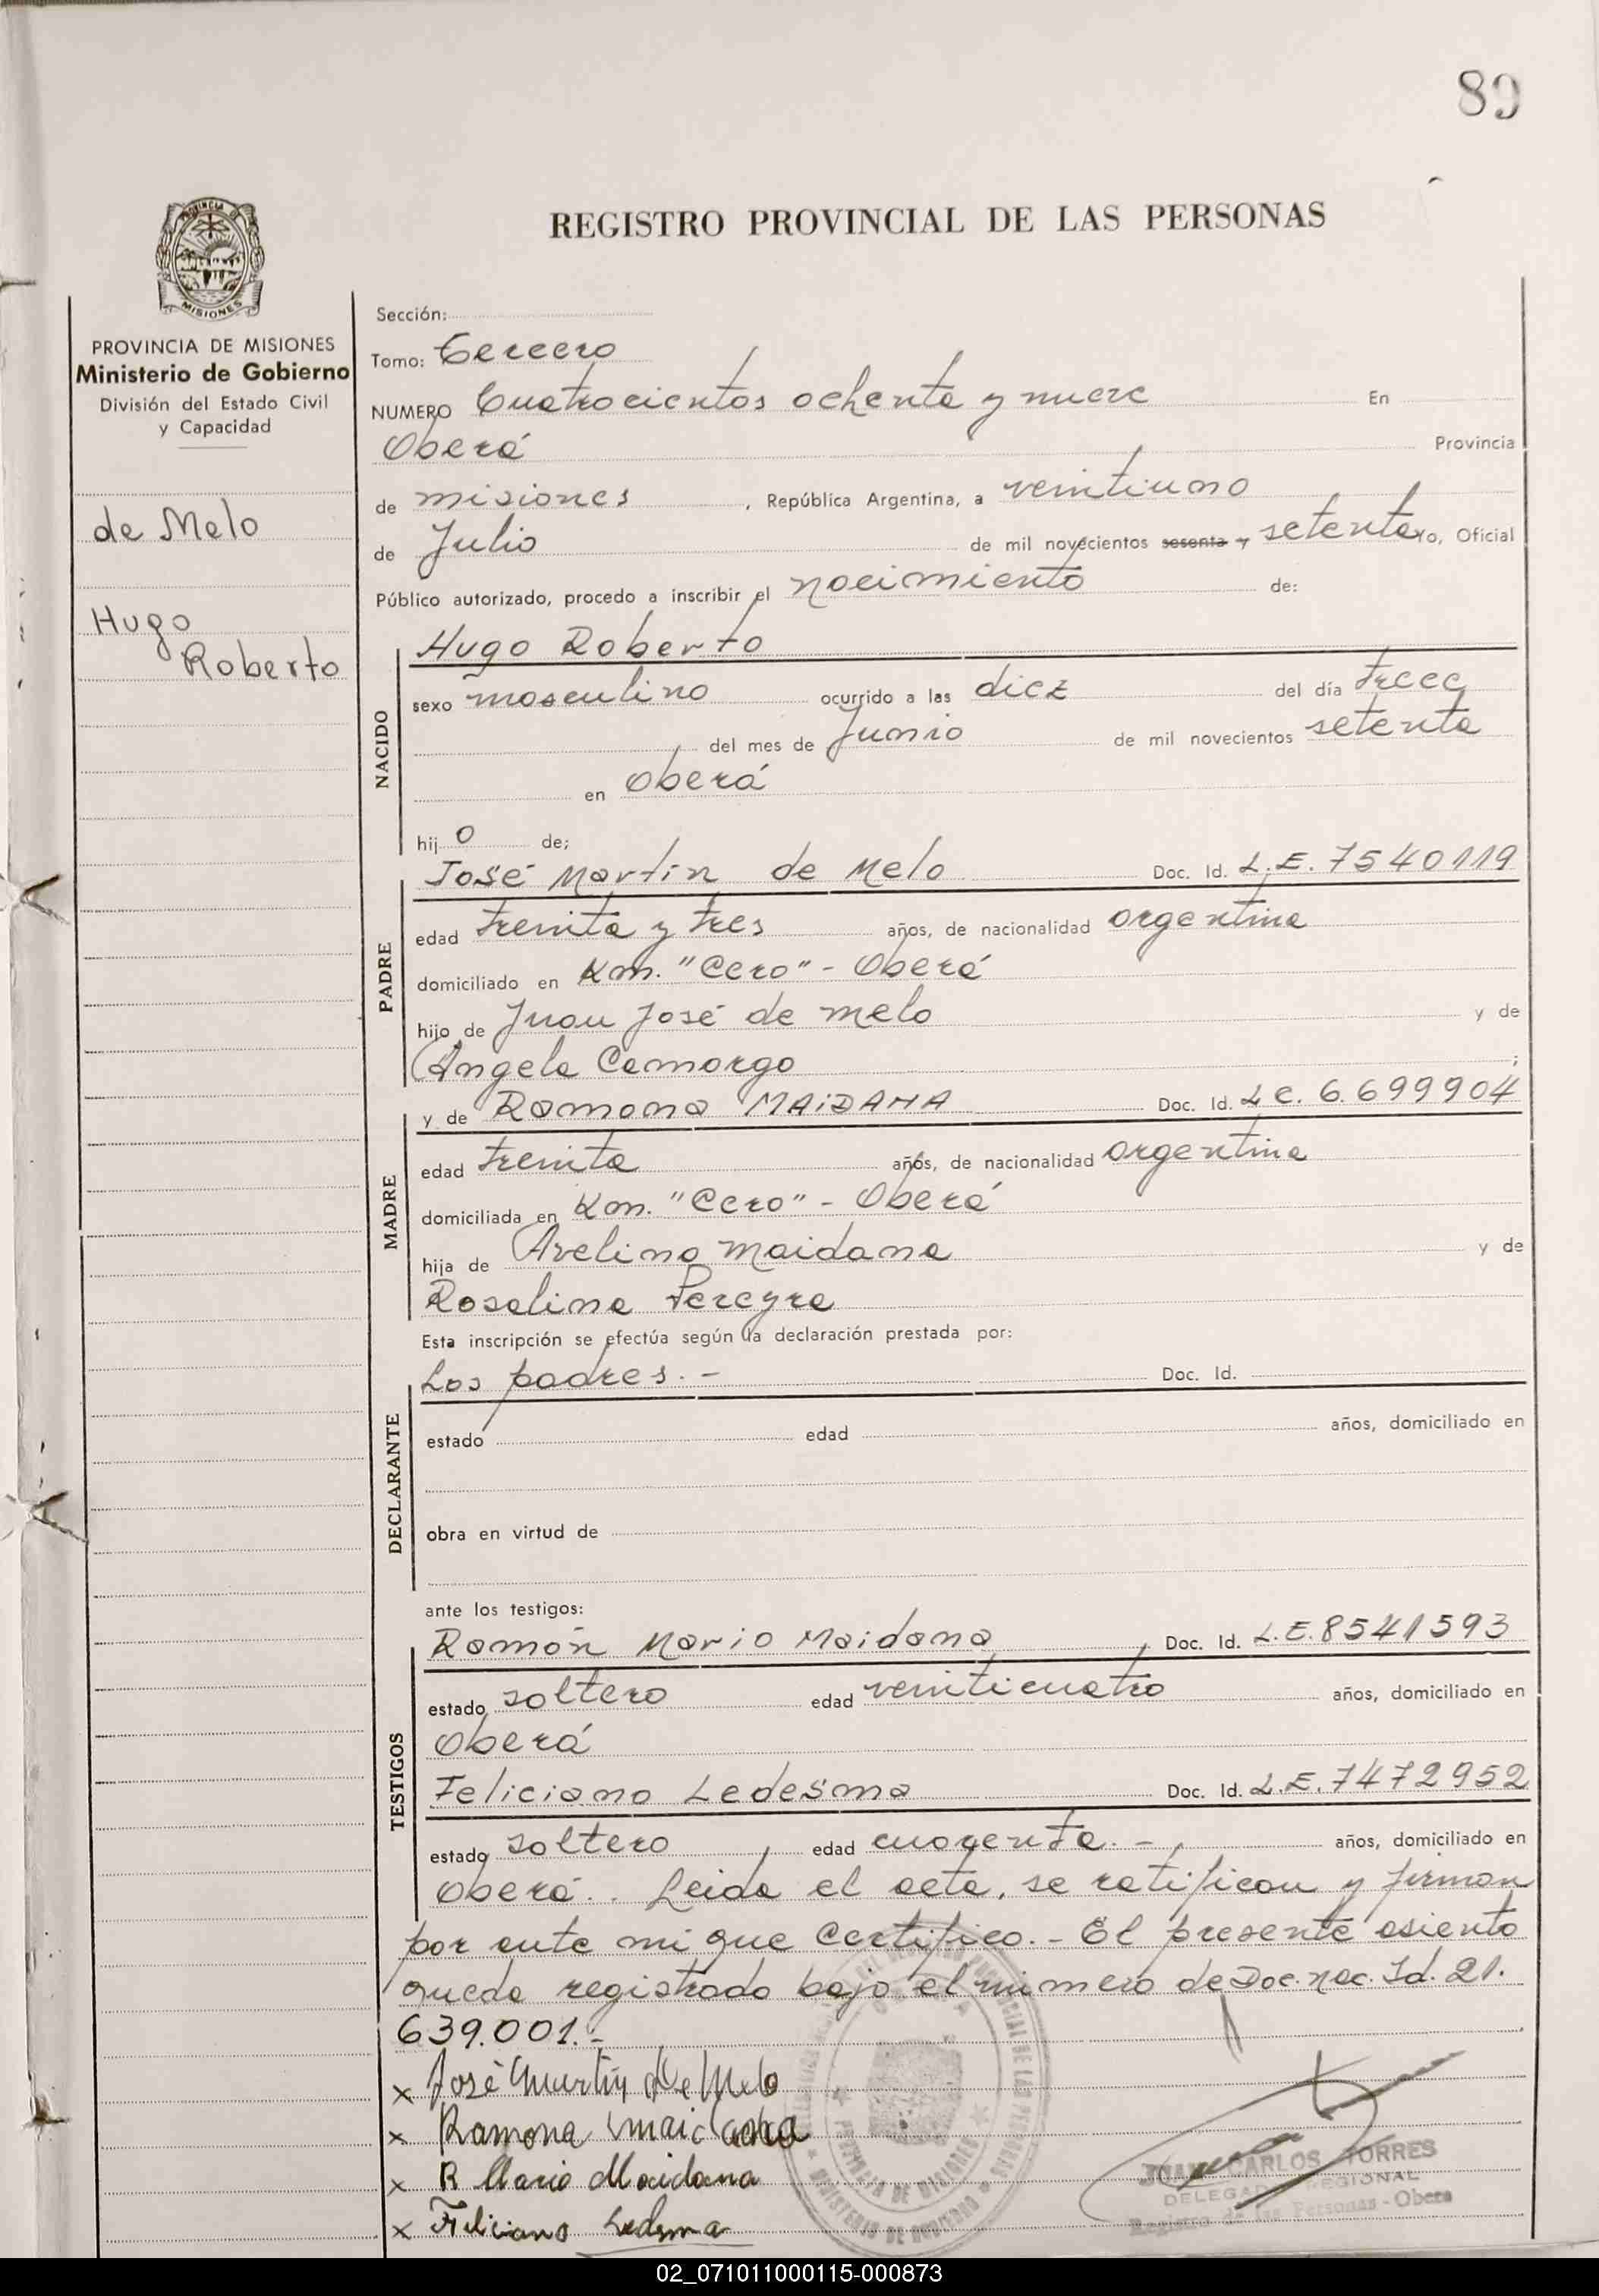 89
REGISTRO PROVINCIAL DE LAS PERSONAS
PROVINCIA DE MISIONES
Ministerio de Gobierno
División del Estado Civil
y Capacidad
de Melo
Hugo
Roberto
Sección:
Tomo: Tercero
NUMERO Cuatrocientos ochenta y nueve En
Oberá Provincia
de misiones, República Argentina, a veintiuno
de Julio de mil novecientos sesenta y setenta Yo, Oficial
Público autorizado, procedo a inscribir el nacimiento de:
NACIDO
Hugo Roberto
sexo masculino ocurrido a las diez del día trece
del mes de Junio de mil novecientos setenta
en Oberá
hijo de;
PADRE
José Martín de Melo Doc. Id. L.E. 7540119
edad treinta y tres años, de nacionalidad argentina
domiciliado en Km. "Cero" - Oberá
hijo de Juan José de melo y de
Angela Camargo ;
MADRE
y de Ramona MAIDANA Doc. Id. L C. 6.699904
edad treinta años, de nacionalidad argentina
domiciliada en Km. "Cero" - Oberá
hija de Avelino maidana y de
Rosalina Pereyra
Esta inscripción se efectúa según la declaración prestada por:
DECLARANTE
Los padres. - Doc. Id.
estado edad años, domiciliado en
obra en virtud de
ante los testigos:
TESTIGOS
Ramón Mario Maidana, Doc. Id. L.E. 8541593
estado soltero edad veinticuatro años, domiciliado en
Oberá
Feliciano Ledesma Doc. Id. L.E. 7472952
estado soltero edad cuarenta. - años, domiciliado en
Oberá. . Leida el acta, se ratifican y firman
por ante mi que Certifico. - El presente asiento
queda registrado bajo el número de Doc. nac. Id. 21.
639.001.-
x José Martin De Melo
x Ramona maidana
x R Mario Maidana
x Feliciano Ledesma
JUAN CARLOS TORRES
DELEGADO REGIONAL
Registro de las Personas - Obera
02_071011000115-000873